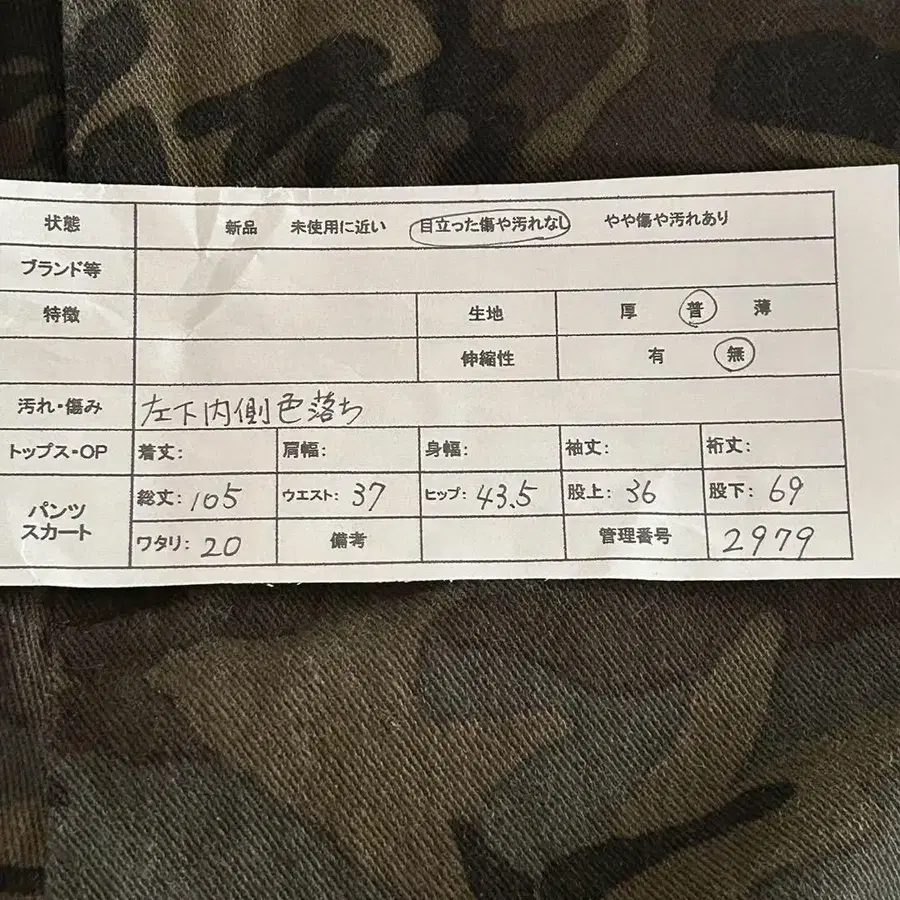 状態 新品 未使用に近い 目立った傷や汚れなし やや傷や汚れあり
ブランド等
特徴 生地 厚 普 薄
伸縮性 有 無
汚れ・傷み 左下内側色落ち
トップス・OP 着丈: 肩幅: 身幅: 袖丈: 裄丈:
パンツ スカート
総丈: 105 ウエスト: 37 ヒップ: 43.5 股上: 36 股下: 69
ワタリ: 20 備考 管理番号 2979